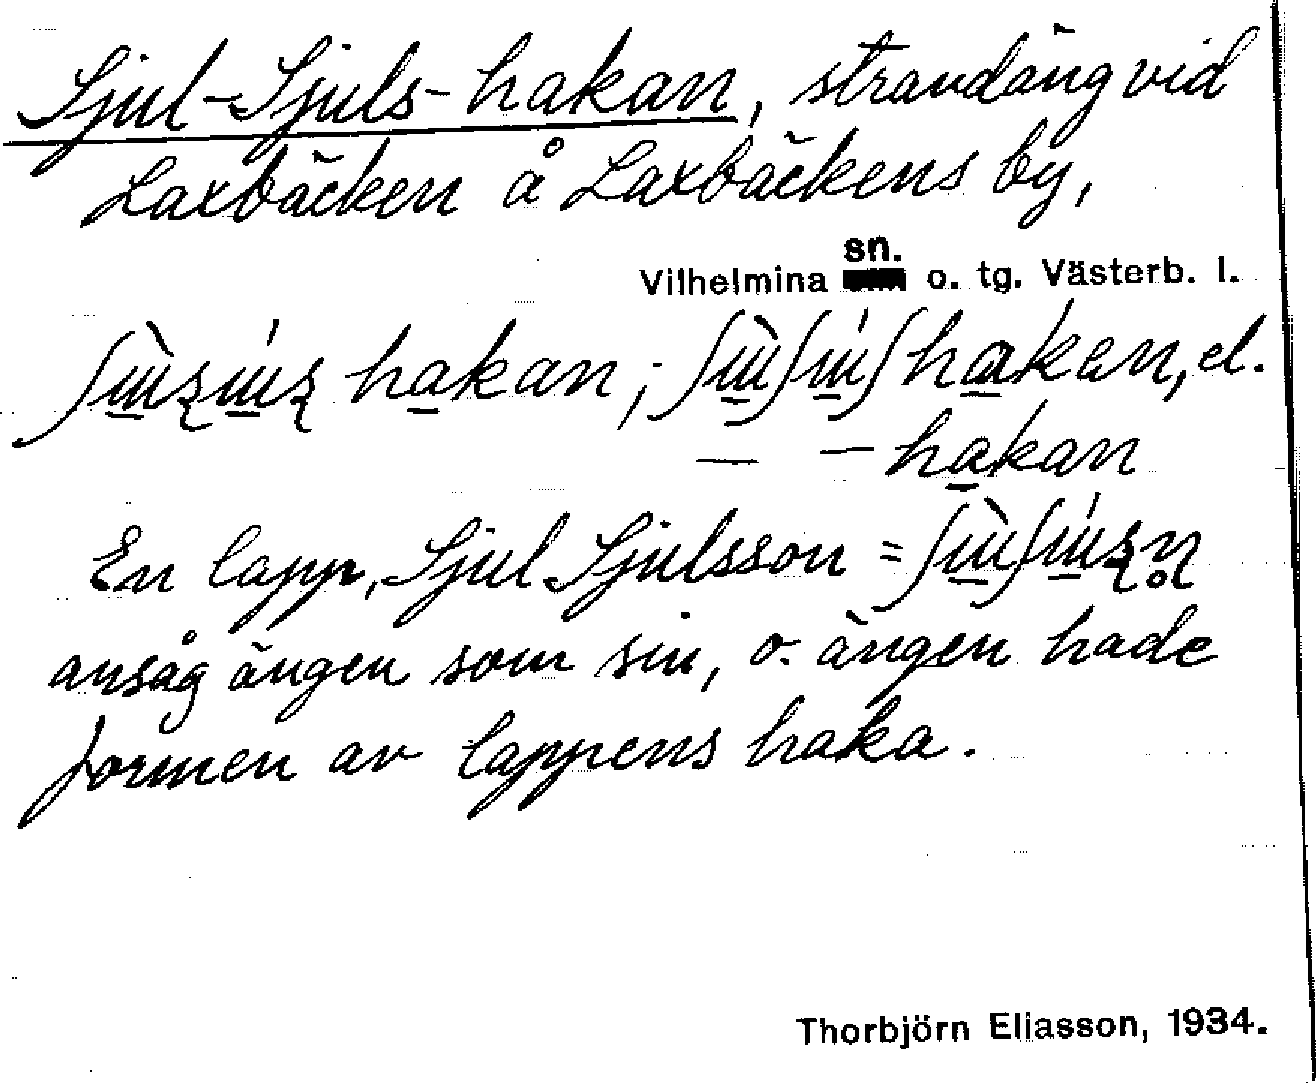 Sjul-Sjuls-hakan, strandäng vid
Laxbäcken å Laxbäckens by,
Vilhelmina sn. o. tg. Västerb. l.
hakan; hakan, el.
— — hakan
En lapp, Sjul Sjulsson =
ansåg ängen som sin, o. ängen hade
formen av lappens haka.
Thorbjörn Eliasson, 1934.